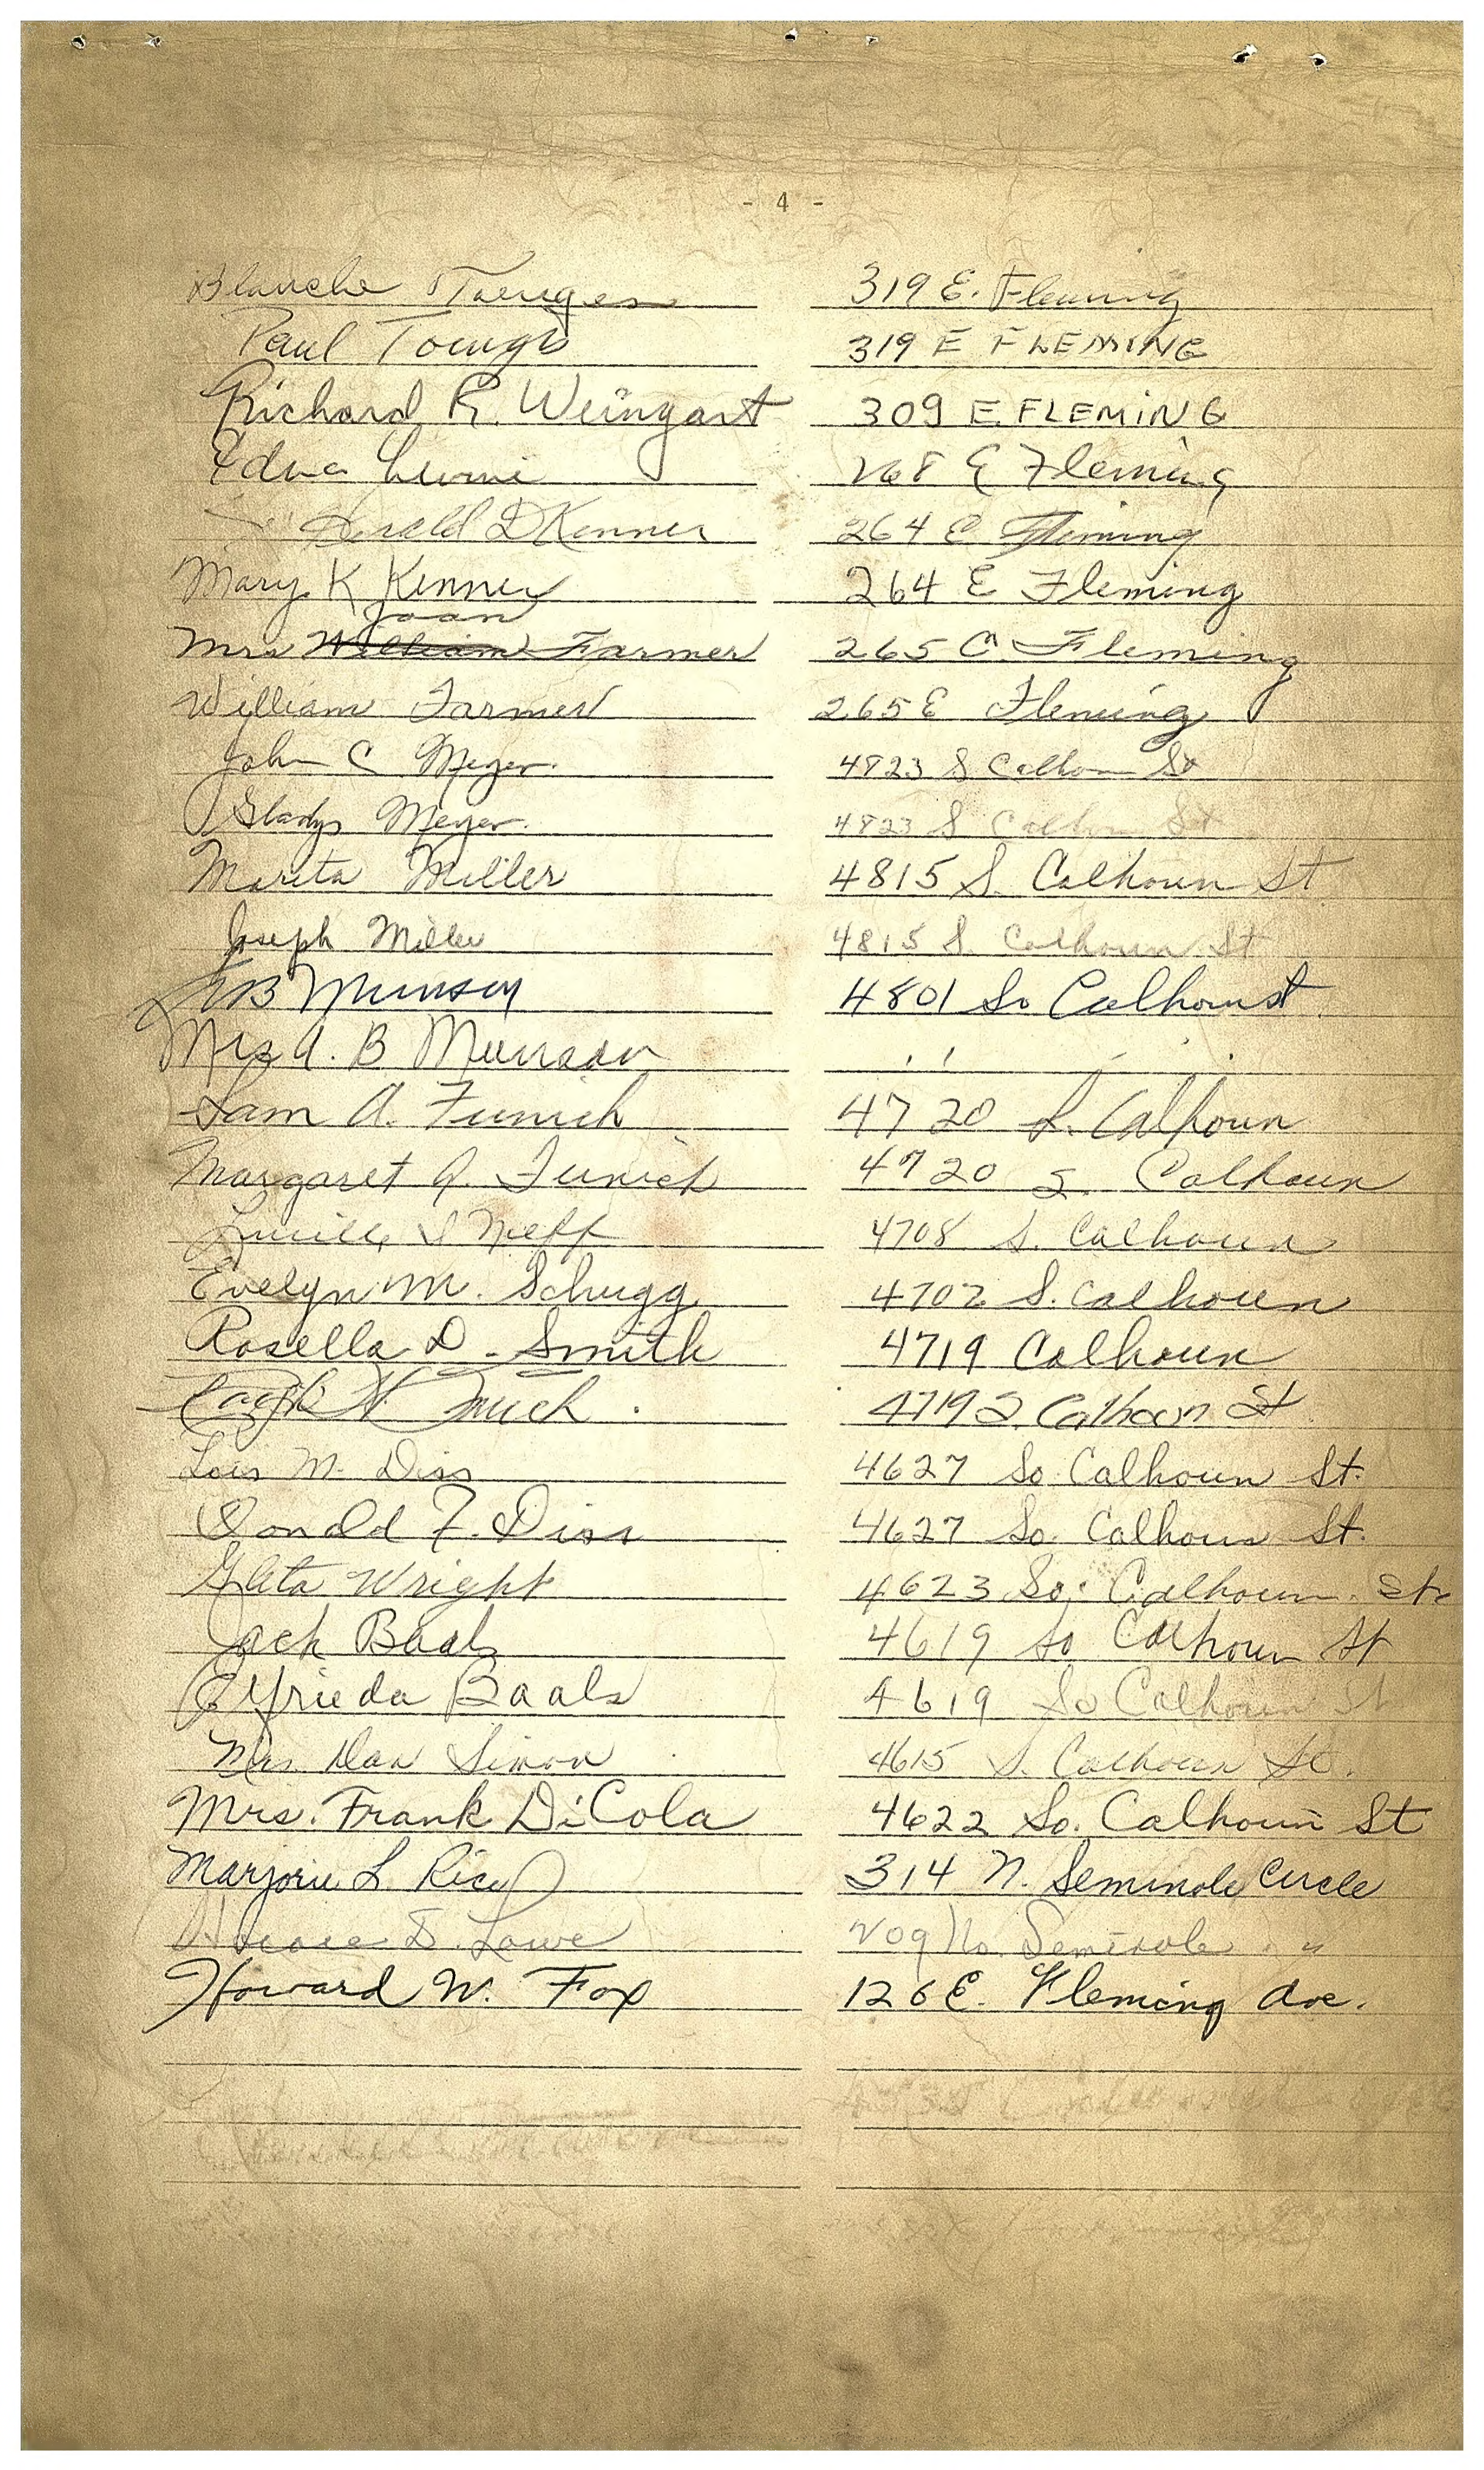 - 4 -
Blanche Toenges 319 E. Fleming
Paul Toenges 319 E FLEMING
Richard R. Weingart 309 E. FLEMING
Edna 268 E Fleming
D Kenner 264 E Fleming
Mary K Kenner 264 E Fleming
Joan
Mrs William Farmer 265 E. Fleming
William Farmer 265 E Fleming
John C Meyer. 4823 S Calhoun St
Gladys Meyer. 4823 S Calhoun St
Marita Miller 4815 S. Calhoun St
Joseph Miller 4815 S. Calhoun St
AB Munson 4801 So Calhoun st
Mrs A. B Munson " "
Sam A. Funich 4720 S. Calhoun
Margaret J. Funich 4720 S. Calhoun
Lucille I Neff 4708 S. Calhoun
Evelyn M. Schugg 4702 S. Calhoun
Rosella D. Smith 4719 Calhoun
4719 S. Calhoun St
Lois M. Diss 4627 So. Calhoun St.
Donald F. Diss 4627 So. Calhoun St.
Gleta Wright 4623 So. Calhoun St.
Jack Baals 4619 So Calhoun St
Elfrieda Baals 4619 So Calhoun St
Mrs. Dan Simon 4615 S. Calhoun St.
Mrs. Frank DiCola 4622 So. Calhoun St
Marjorie L. Rice 314 N. Seminole Circle
D. Lowe 209 No. Seminole "
Howard W. Fox 126 E. Fleming Ave.